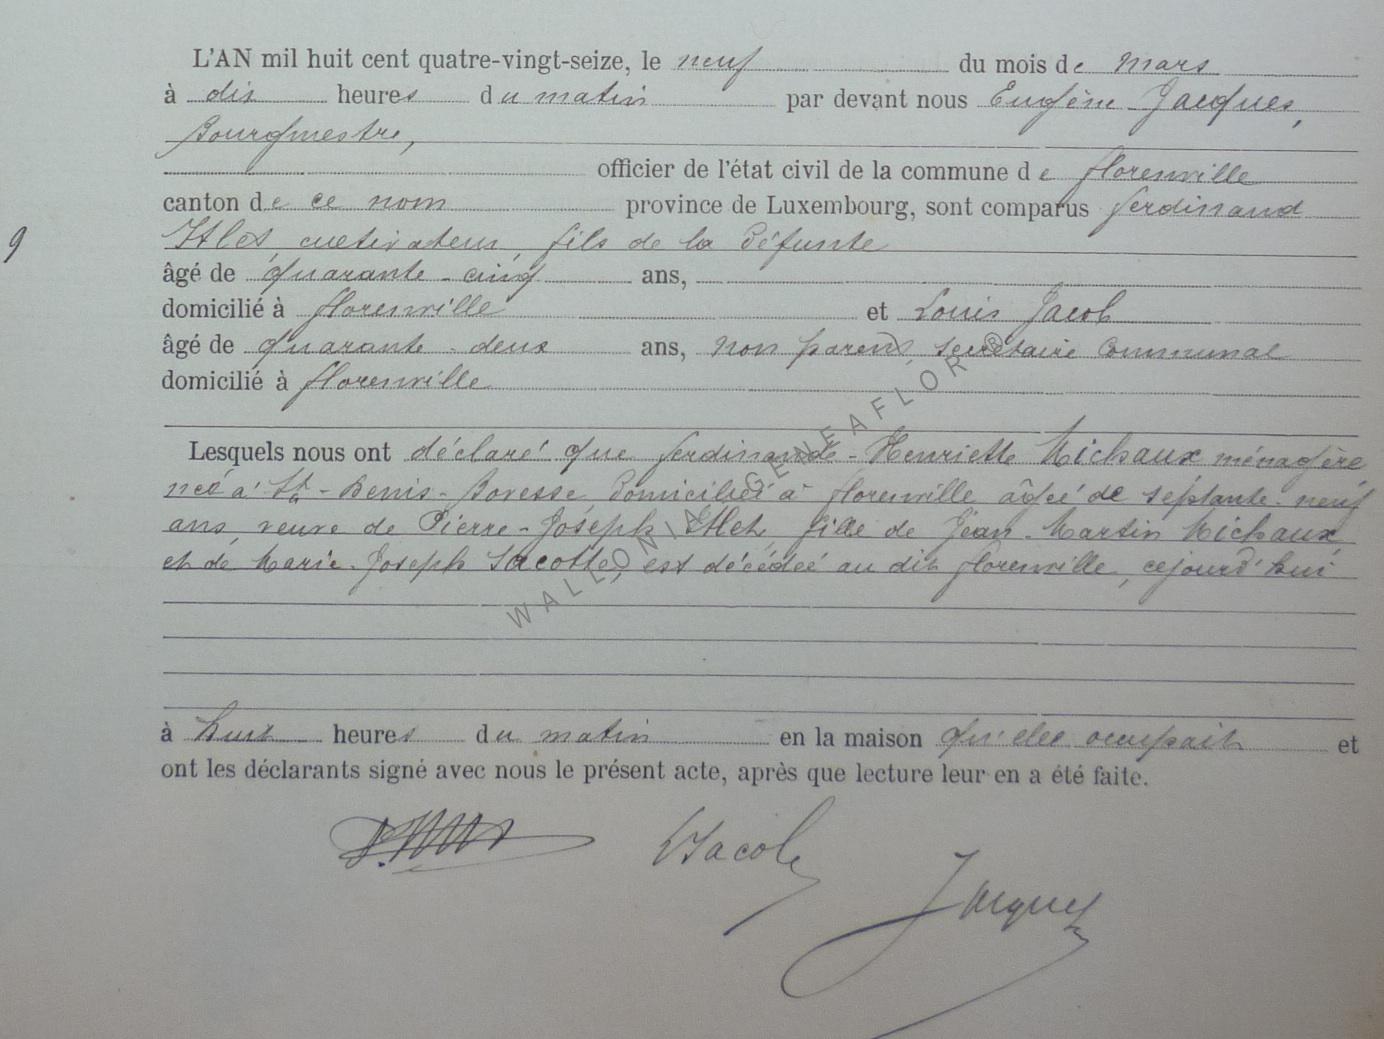 L'AN mil huit cent quatre-vingt-seize, le neuf du mois de mars
à dix heures du matin par devant nous Eugène Jacques,
Bourgmestre,
officier de l'état civil de la commune de florenville
canton de ce nom province de Luxembourg, sont comparus ferdinand
cultivateur, fils de la défunte
9
âgé de quarante-cinq ans,
domicilié à florenville et Louis Jacob
âgé de quarante-deux ans, non parent, secrétaire communal
domicilié à florenville
Lesquels nous ont déclaré que ferdinande-Henriette Michaux ménagère
née à St-Denis-Bovesse domiciliée à florenville âgée de septante-neuf
ans, veuve de Pierre-Joseph fille de Jean-Martin Michaux
et de Marie-Joseph Lacotte, est décédée au dit florenville, cejourd'hui
à huit heures du matin en la maison qu'elle occupait et
ont les déclarants signé avec nous le présent acte, après que lecture leur en a été faite.
LJacob
Jacques
WALLONIA GENEAFLOR ®